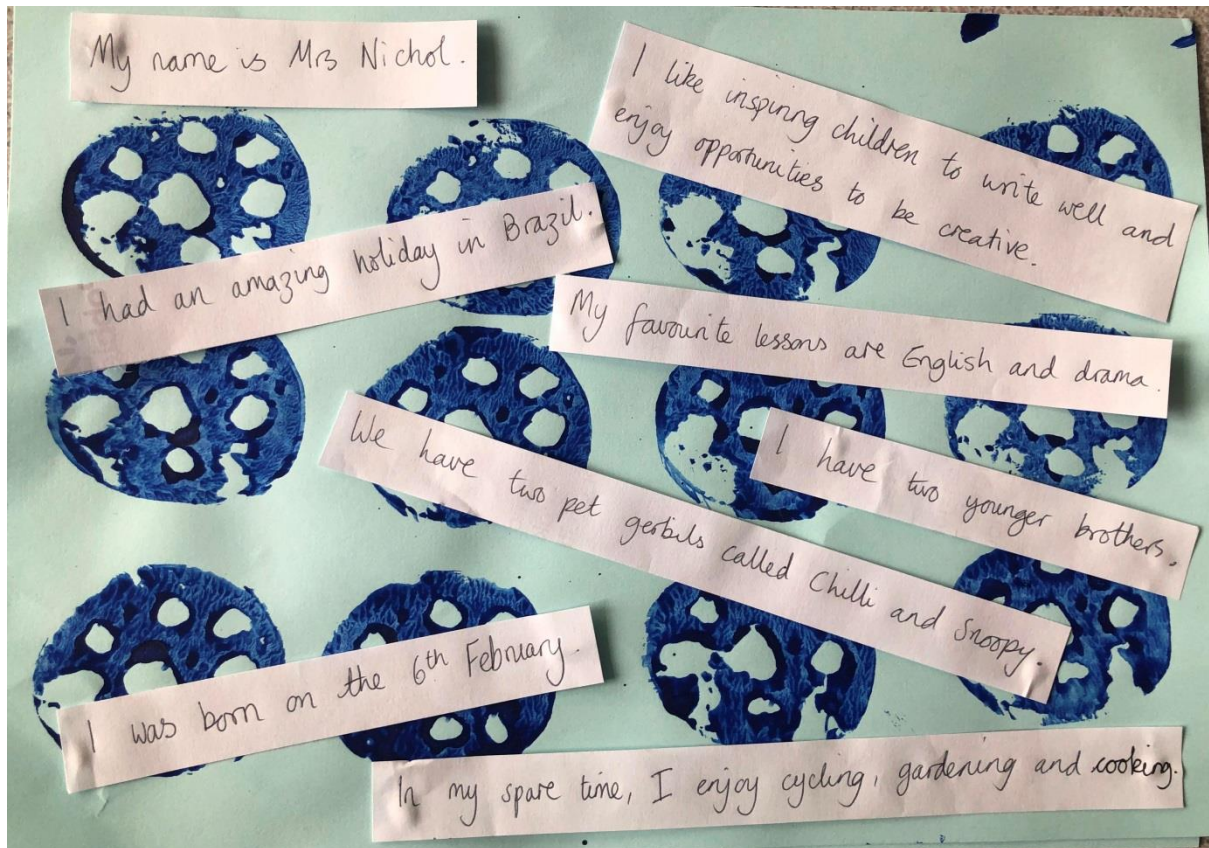 My name is Mrs Nichol.
I like inspiring children to write well and
enjoy opportunities to be creative.
I had an amazing holiday in Brazil.
My favourite lessons are English and drama.
We have two pet gerbils called Chilli and Snoopy.
I have two younger brothers.
I was born on the 6th February.
In my spare time, I enjoy cycling, gardening and cooking.